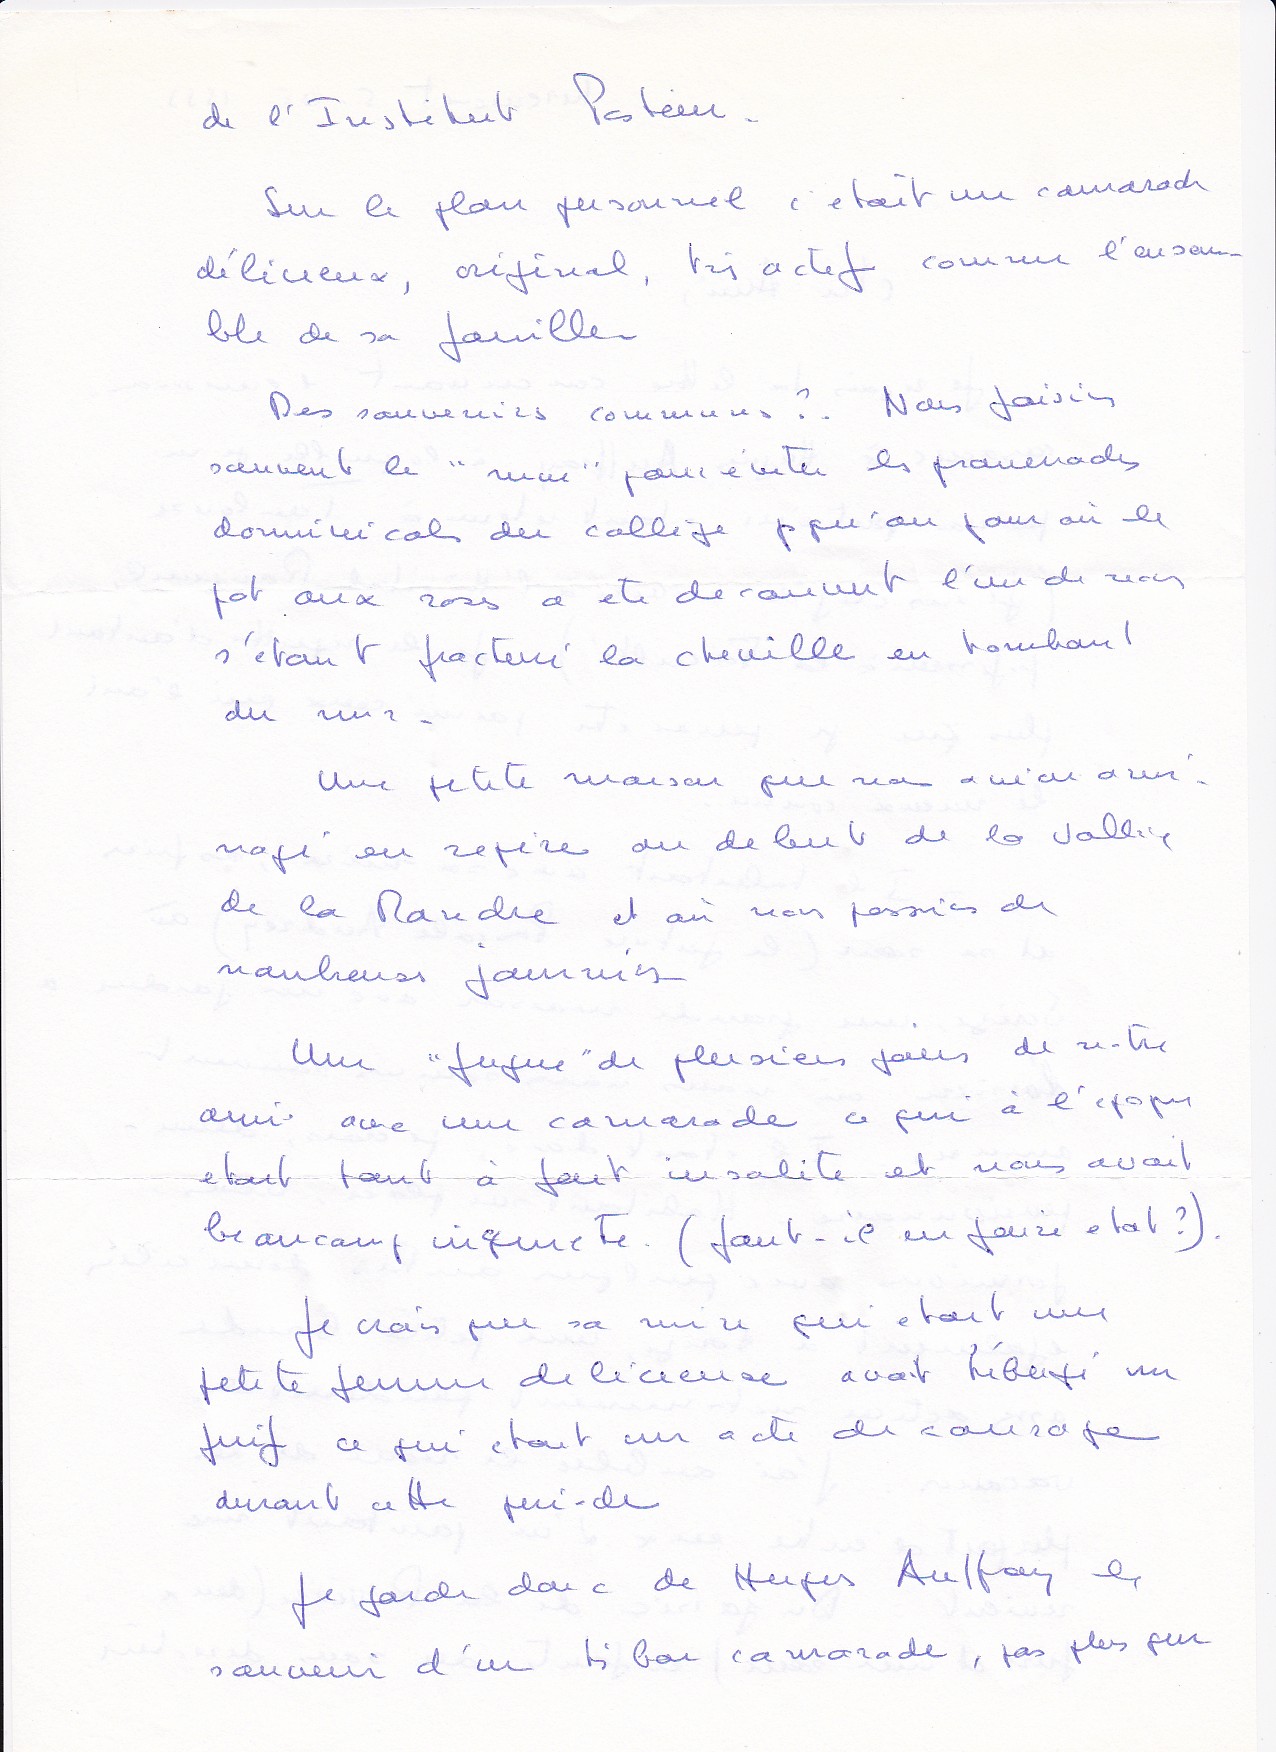 de l'Institut Pasteur.
Sur le plan personnel c'etait un camarade
délicieux, original, très actif comme l'ensem-
ble de sa famille
Des souvenirs communs ?. Nous faisions
souvent le "mur" pour éviter les promenades
dominicales du collège jusqu'au jour où le
pot aux roses a ete decouvert l'un de nous
s'étant fracturé la cheville en tombant
du mur.
Une petite maison que nous avions amé-
nagé en repère au debut de la vallée
de la Mandre et où nous passions de
nombreuses journées
Une "fugue" de plusieurs jours de notre
ami avec une camarade ce qui à l'epoque
etait tout à fait insolite et nous avait
beaucoup inquiete. (faut-il en faire etat ?).
Je crois que sa mère qui etait une
petite femme delicieuse avait hébergé un
juif ce qui etait un acte de courage
durant cette periode
Je garde donc de Hugues Auffray le
souvenir d'un tès bon camarade, pas plus que